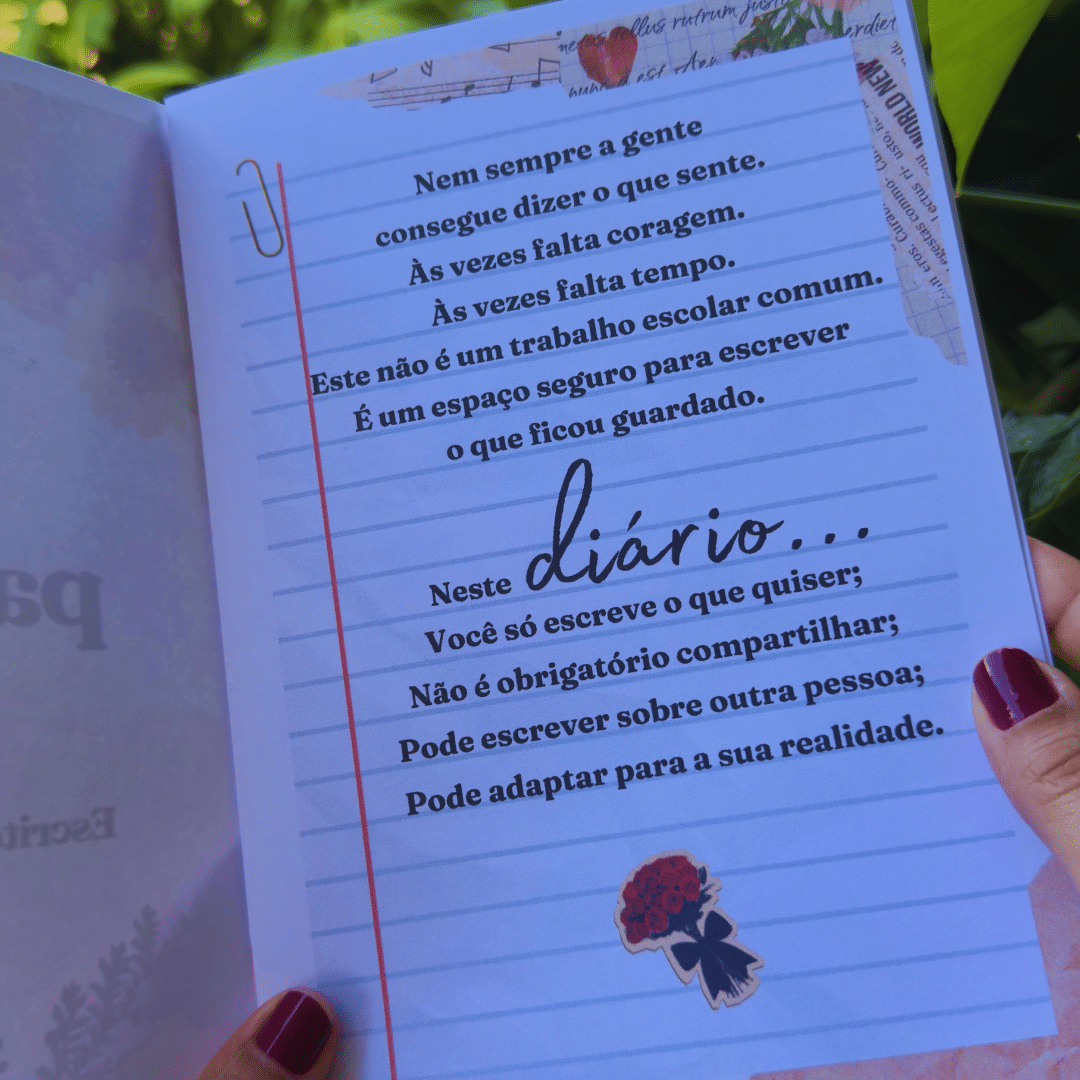 Nem sempre a gente
consegue dizer o que sente.
Às vezes falta coragem.
Às vezes falta tempo.
Este não é um trabalho escolar comum.
É um espaço seguro para escrever
o que ficou guardado.
Neste diário...
Você só escreve o que quiser;
Não é obrigatório compartilhar;
Pode escrever sobre outra pessoa;
Pode adaptar para a sua realidade.
WORLD NEW
egestas commo